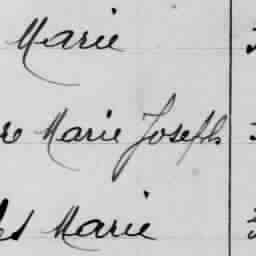 Marie
re Marie Joseph
es Marie